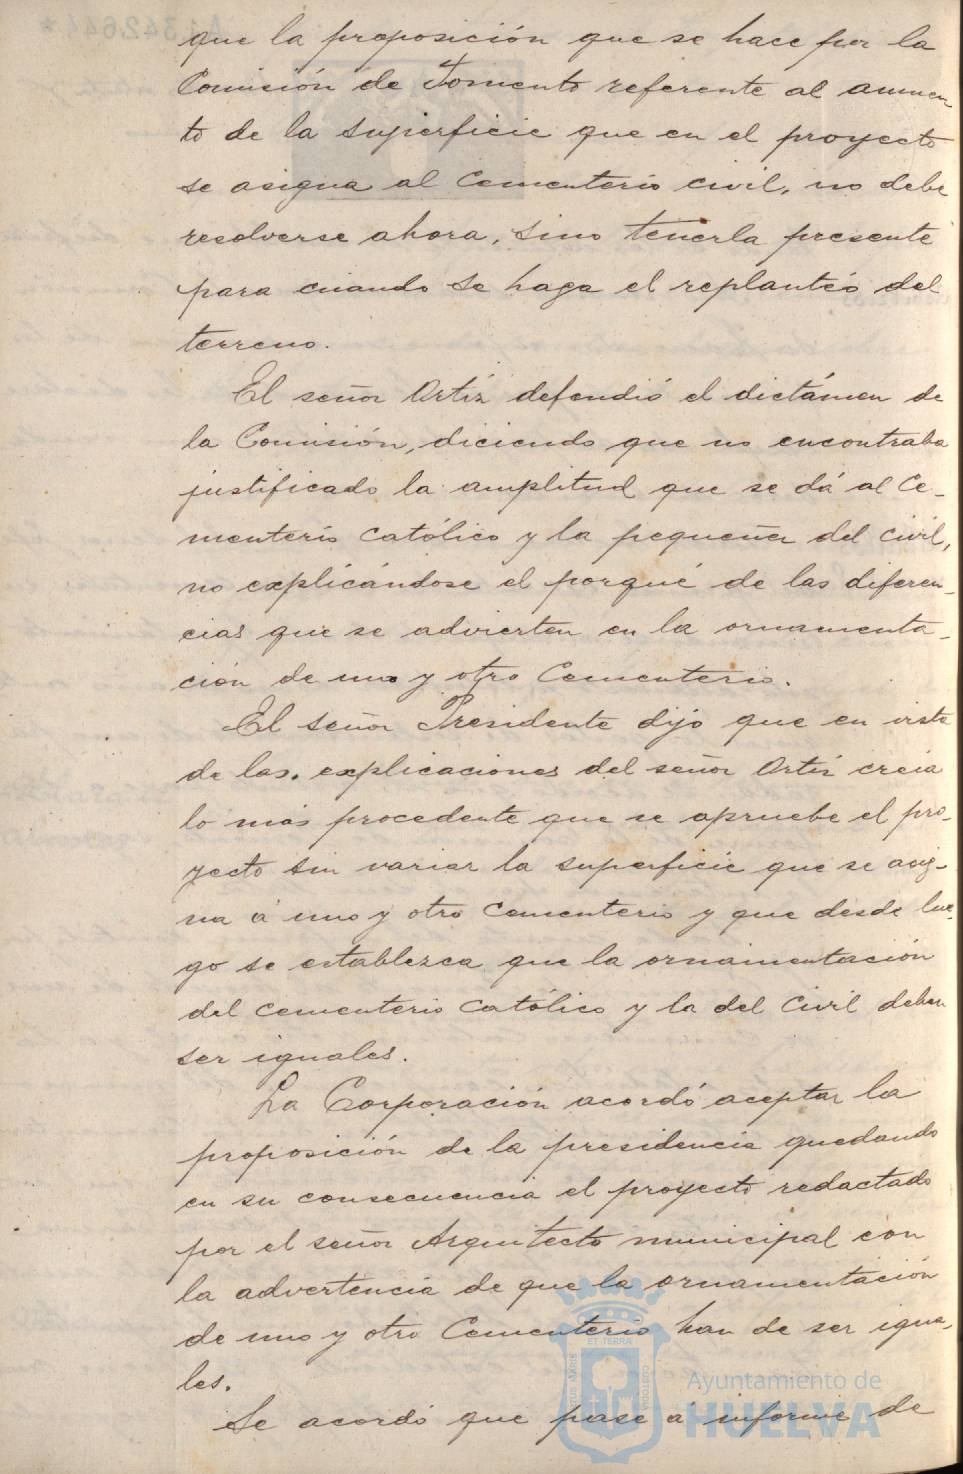 que la proposición que se hace por la
Comisión de Fomento referente al aumen
to de la superficie que en el proyecto
se asigna al Cementerio civil, no debe
resolverse ahora, sino tenerla presente
para cuando se haga el replantéo del
terreno.
El señor Ortíz defendió el dictámen de
la Comisión, diciendo que no encontraba
justificado la amplitud que se dá al Ce-
menterio Católico y la pequeñez del civil,
no explicándose el porqué de las diferen-
cias que se advierten en la ornamenta-
ción de uno y otro Cementerio.
El señor Presidente dijo que en vista
de las explicaciones del señor Ortíz creía
lo más procedente que se apruebe el pro-
yecto sin variar la superficie que se asig-
na á uno y otro cementerio y que desde lue-
go se establezca que la ornamentación
del cementerio Católico y la del Civil deben
ser iguales.
La Corporación acordó aceptar la
proposición de la presidencia quedando
en su consecuencia el proyecto redactado
por el señor Arquitecto municipal con
la advertencia de que la ornamentación
de uno y otro Cementerio han de ser igua-
les.
Se acordó que pase á informe de
Ayuntamiento de
HUELVA
ET TERRA
PORTUS MARIS
CUSTODIA